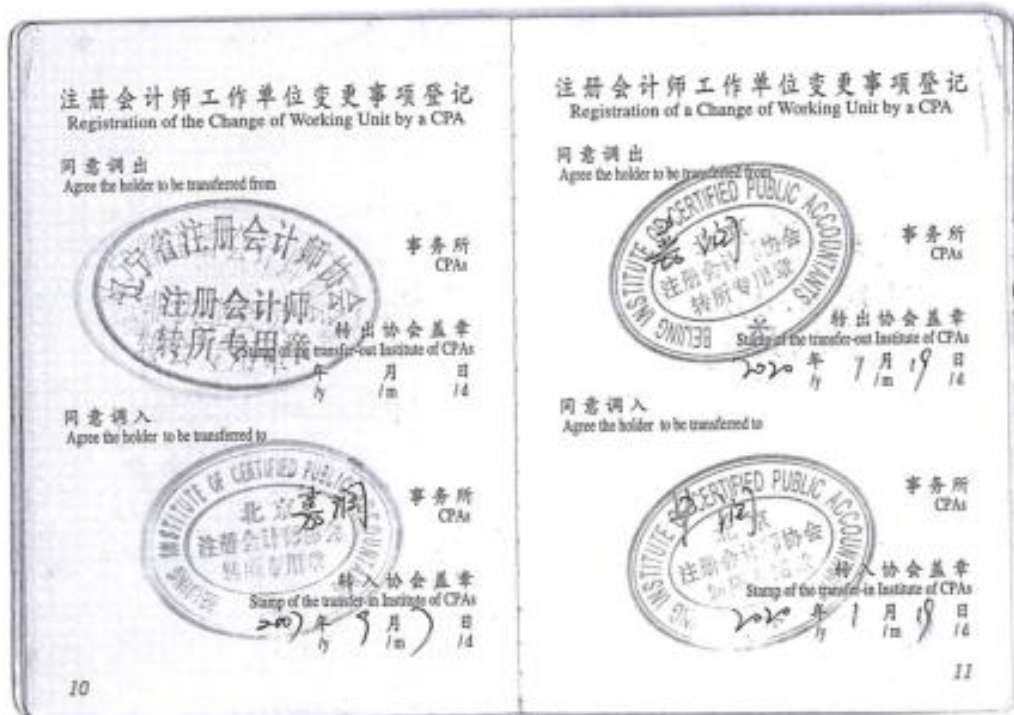 注册会计师工作单位变更事项登记
Registration of the Change of Working Unit by a CPA
同意调出
Agree the holder to be transferred from
辽宁省注册会计师协会
注册会计师
转所专用章
事务所
CPAs
转出协会盖章
Stamp of the transfer-out Institute of CPAs
年 月 日
/y /m /d
同意调入
Agree the holder to be transferred to
BEIJING INSTITUTE OF CERTIFIED PUBLIC ACCOUNTANTS
北京
注册会计师协会
转所专用章
嘉润
事务所
CPAs
转入协会盖章
Stamp of the transfer-in Institute of CPAs
2007 年 9 月 7 日
/y /m /d
10
注册会计师工作单位变更事项登记
Registration of a Change of Working Unit by a CPA
同意调出
Agree the holder to be transferred from
BEIJING INSTITUTE OF CERTIFIED PUBLIC ACCOUNTANTS
注册会计师协会
转所专用章
事务所
CPAs
转出协会盖章
Stamp of the transfer-out Institute of CPAs
2020 年 1 月 19 日
/y /m /d
同意调入
Agree the holder to be transferred to
INSTITUTE OF CERTIFIED PUBLIC ACCOUNTANTS
注册会计师协会
事务所
CPAs
转入协会盖章
Stamp of the transfer-in Institute of CPAs
2020 年 1 月 19 日
/y /m /d
11